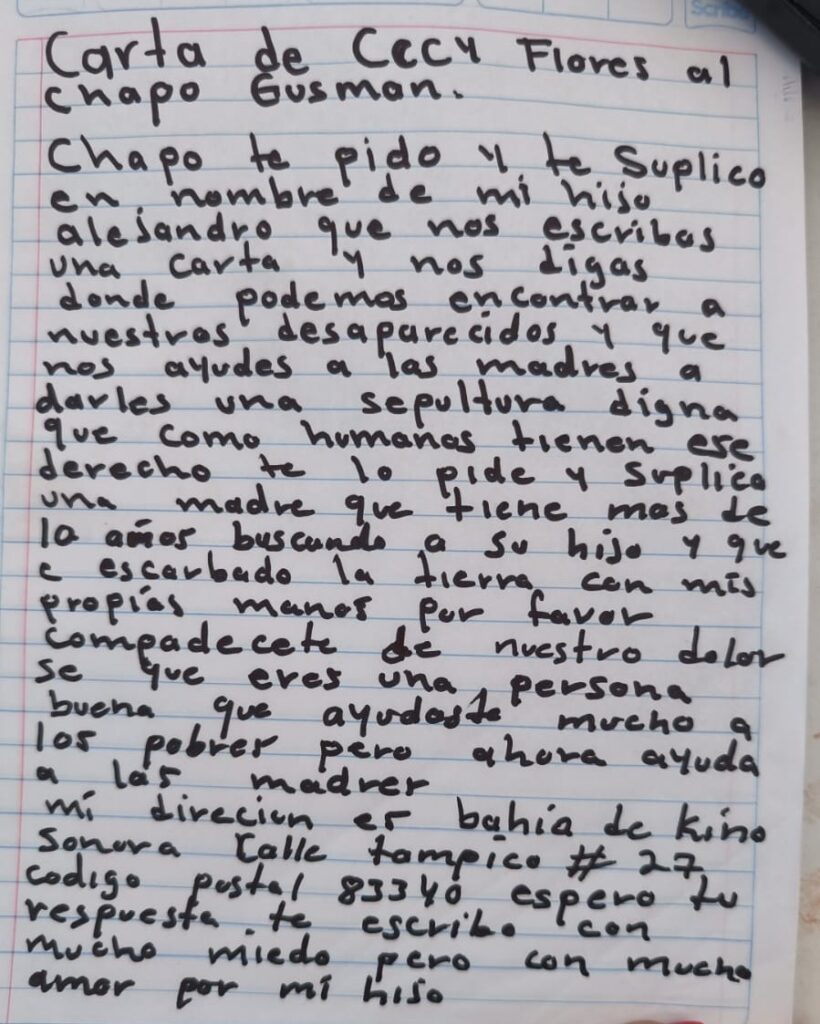 Carta de Cecy Flores al
chapo Gusman.
Chapo te pido y te Suplico
en nombre de mi hiso
alejandro que nos escribas
una carta y nos digas
donde podemos encontrar a
nuestros desaparecidos y que
nos ayudes a las madres a
darles una sepultura digna
que como humanos tienen ese
derecho te lo pide y suplico
una madre que tiene mas de
10 años buscando a su hijo y que
e escarbado la tierra con mis
propias manos por favor
compadecete de nuestro dolor
se que eres una persona
buena que ayudaste mucho a
los pobrer pero ahora ayuda
a las madrer
mi direcion er bahia de kino
sonora Calle tampico # 27
codigo postal 83340 espero tu
respuesta. te escribo con
mucho miedo pero con mucho
amor por mi hiso